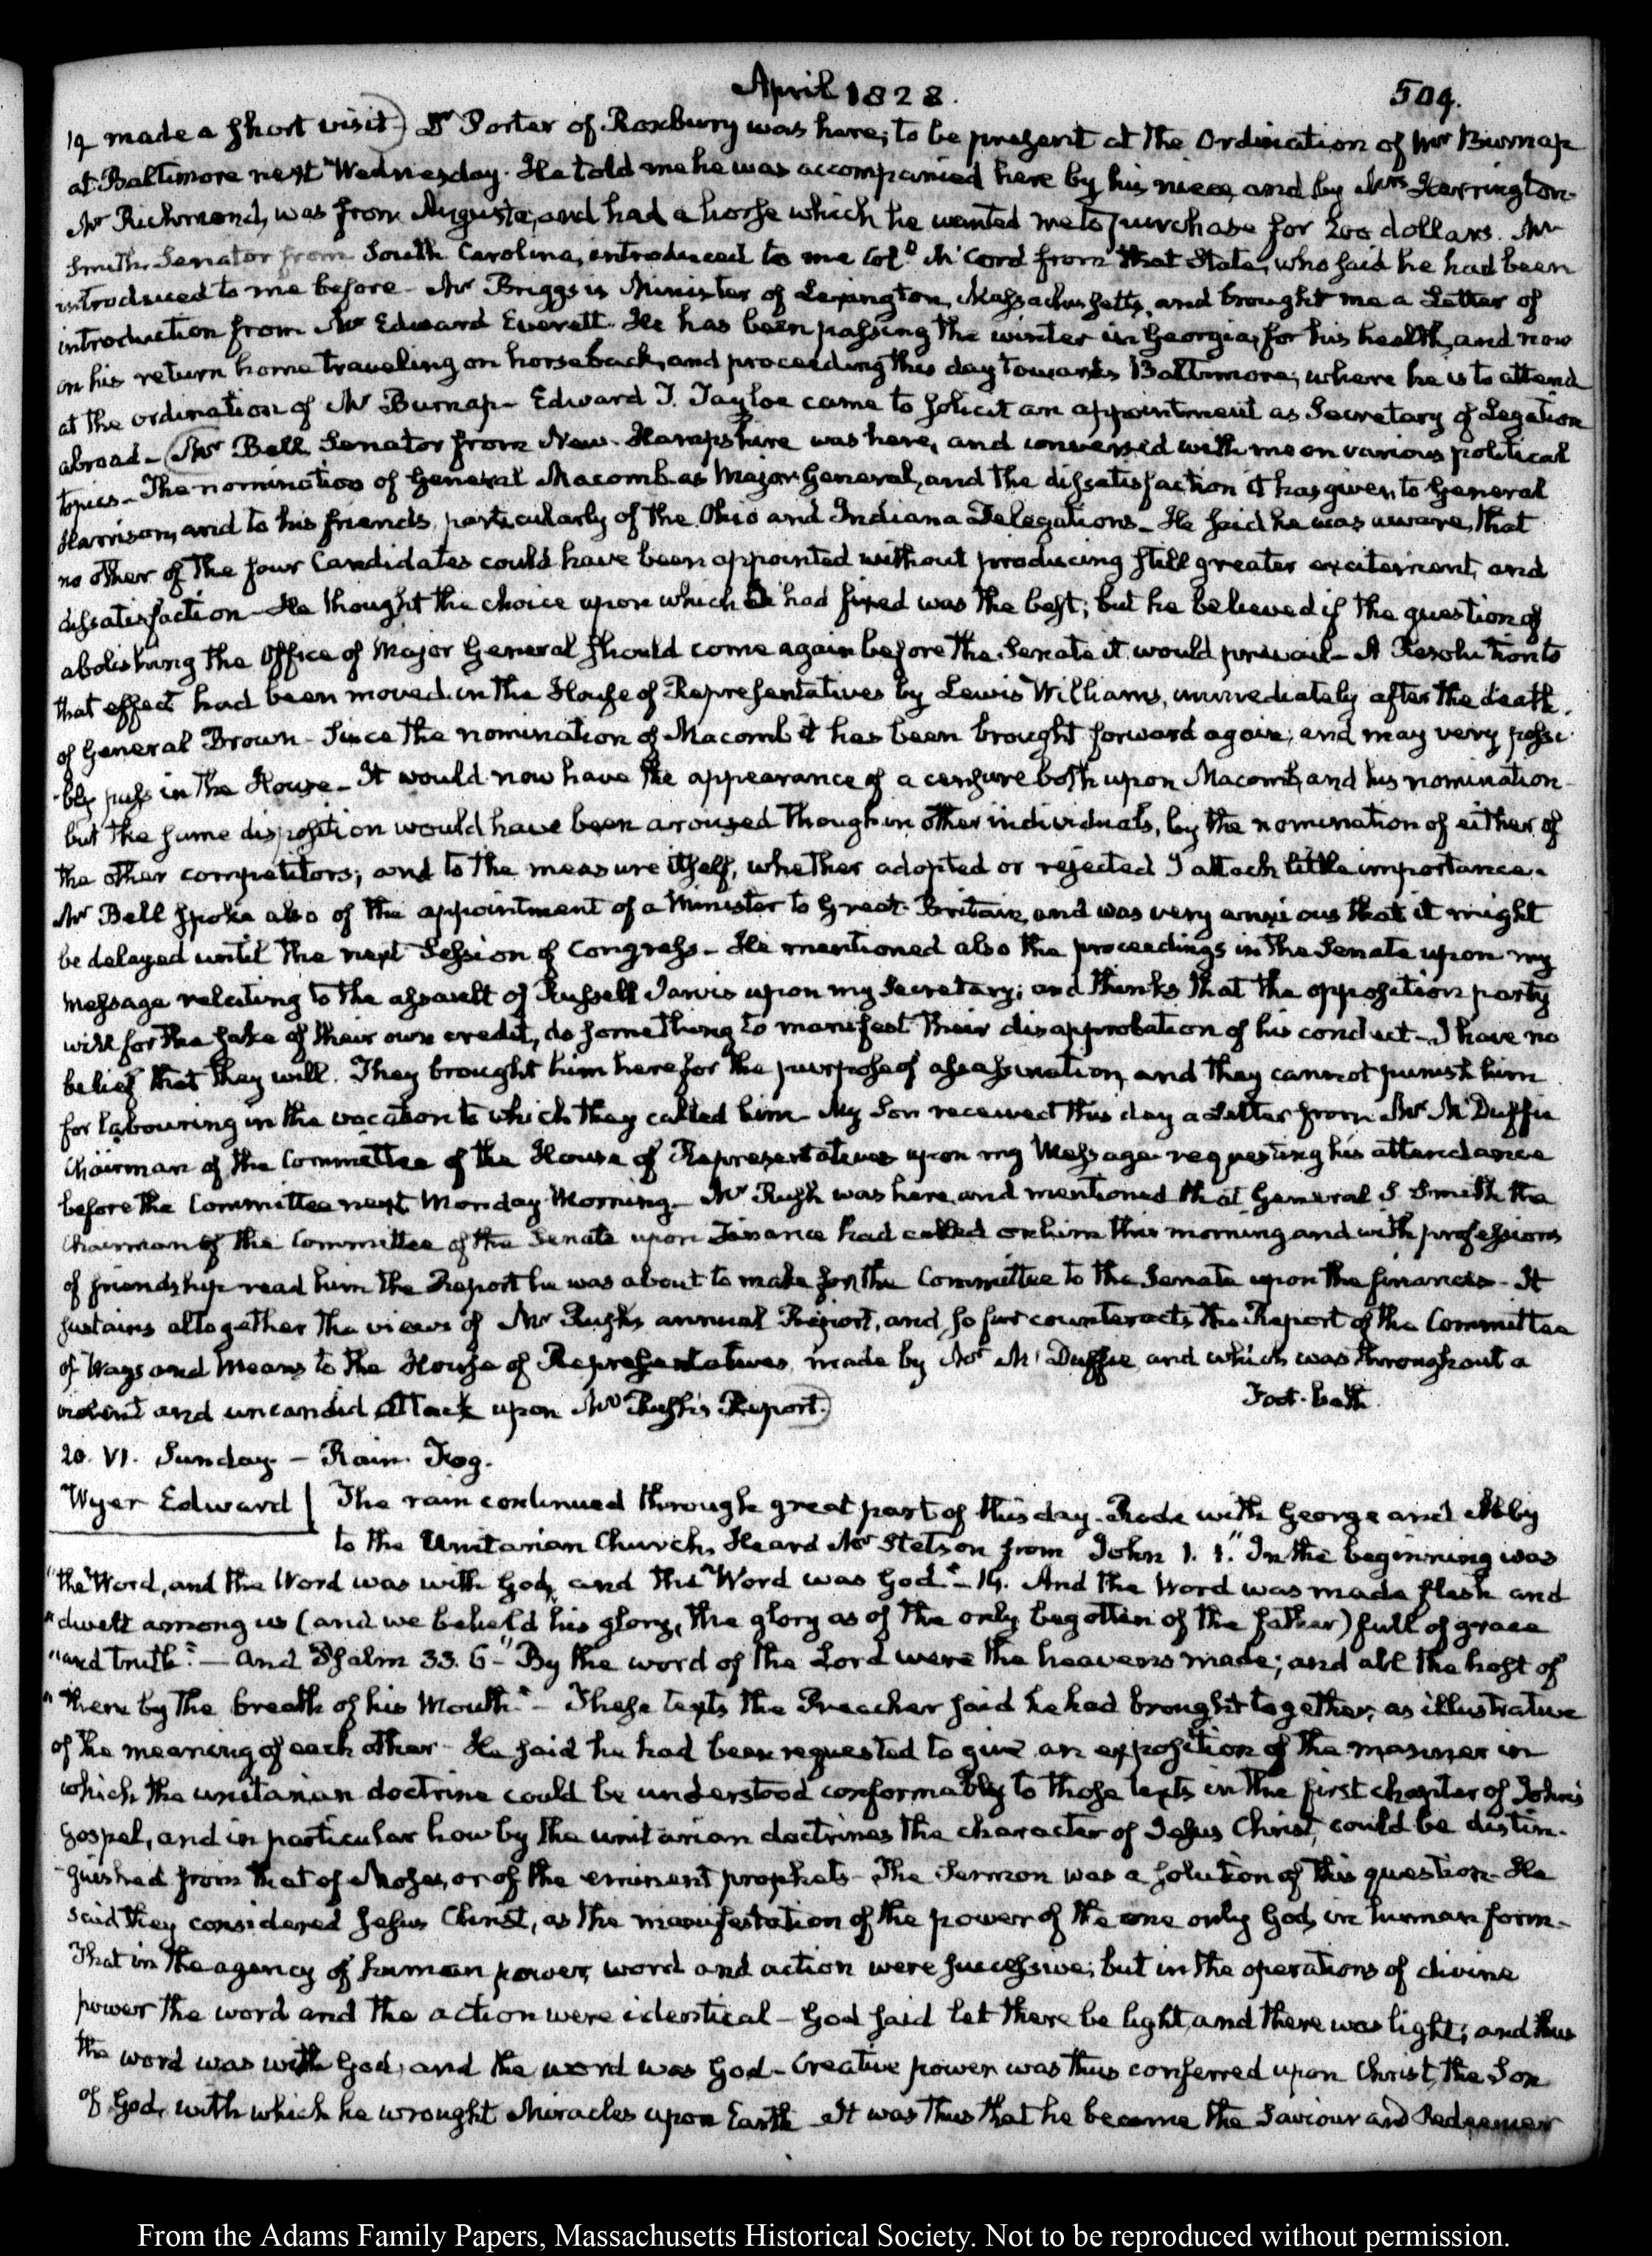 April 1828.
509.
19 made a short visit) Dr Porter of Roxbury was here; to be present at the Ordination of Mr Burnap
at Baltimore next Wednesday. He told me he was accompanied here by his niece, and by Mrs Harrington.
Mr Richmond, was from Augusta, and had a horse which he wanted me to purchase for 200 dollars. Mr
Smith, Senator from South Carolina, introduced to me Coll. McCord from that State, who said he had been
introduced to me before. Mr Briggs is Minister of Lexington, Massachusetts, and brought me a Letter of
introduction from Mr Edward Everett. He has been passing the winter in Georgia, for his health, and now
on his return home traveling on horseback, and proceeding this day towards Baltimore; where he is to attend
at the ordination of Mr Burnap— Edward T. Tayloe came to solicit an appointment as Secretary of Legation
abroad— (Mr Bell, Senator from New-Hampshire was here, and conversed with me on various political
topics— The nomination of General Macomb as Major General, and the dissatisfaction it has given to General
Harrison, and to his friends, particularly of the Ohio and Indiana Delegations— He said he was aware, that
no other of the four Candidates could have been appointed without producing still greater excitement, and
dissatisfaction— He thought the choice upon which I had fixed was the best; but he believed if the question of
abolishing the Office of Major General should come again before the Senate it would prevail— A Resolution to
that effect had been moved in the House of Representatives by Lewis Williams, immediately after the death
of General Brown— Since the nomination of Macomb it has been brought forward again; and may very possi-
-bly pass in the House— It would now have the appearance of a censure both upon Macomb, and his nomination—
but the same disposition would have been aroused though in other individuals, by the nomination of either of
the other competitors; and to the measure itself, whether adopted or rejected I attach little importance.
Mr Bell spoke also of the appointment of a Minister to Great-Britain, and was very anxious that it might
be delayed until the next Session of Congress— He mentioned also the proceedings in the Senate upon my
Message relating to the assault of Russell Jarvis upon my Secretary; and thinks that the opposition party
will for the sake of their own credit, do something to manifest their disapprobation of his conduct— I have no
belief that they will. They brought him here for the purpose of assassination, and they cannot punish him
for labouring in the vocation to which they called him— My Son received this day a Letter from Mr McDuffie
Chairman of the Committee of the House of Representatives upon my Message requesting his attendance
before the Committee next Monday Morning— Mr Rush was here, and mentioned that General S. Smith the
Chairman of the Committee of the Senate upon Finance had called on him this morning and with professions
of friendship read him the Report he was about to make for the Committee to the Senate upon the finances— It
sustains altogether the views of Mr Rush's annual Report, and so far counteracts the Report of the Committee
of Ways and Means to the House of Representatives made by Mr McDuffie and which was throughout a
violent and uncandid attack upon Mr Rush's Report.)
Foot-bath.
20. VI. Sunday— Rain. Fog.
Wyer Edward
The rain continued through great part of this day. Rode with George and Abby
to the Unitarian Church, Heard Mr Stetson from John 1. 1. "In the beginning was
"the Word, and the Word was with God, and the Word was God."— 14. And the Word was made flesh and
"dwelt among us (and we beheld his glory, the glory as of the only begotten of the father) full of grace
"and truth."— and Psalm 33. 6 "By the word of the Lord were the heavens made; and all the host of
"them by the breath of his Mouth."— These texts the Preacher said he had brought together, as illustrative
of the meaning of each other— He said he had been requested to give an exposition of the manner in
which the unitarian doctrine could be understood conformably to those texts in the first chapter of John's
Gospel, and in particular how by the unitarian doctrines the character of Jesus Christ, could be distin-
-guished from that of Moses, or of the eminent prophets— The Sermon was a solution of this question— He
said they considered Jesus Christ, as the manifestation of the power of the one only God, in human form—
That in the agency of human power, word and action were successive; but in the operations of divine
power the word and the action were identical— God said let there be light, and there was light; and thus
the word was with God, and the word was God— Creative power was thus conferred upon Christ, the Son
of God, with which he wrought Miracles upon Earth— It was thus that he became the Saviour and Redeemer
From the Adams Family Papers, Massachusetts Historical Society. Not to be reproduced without permission.